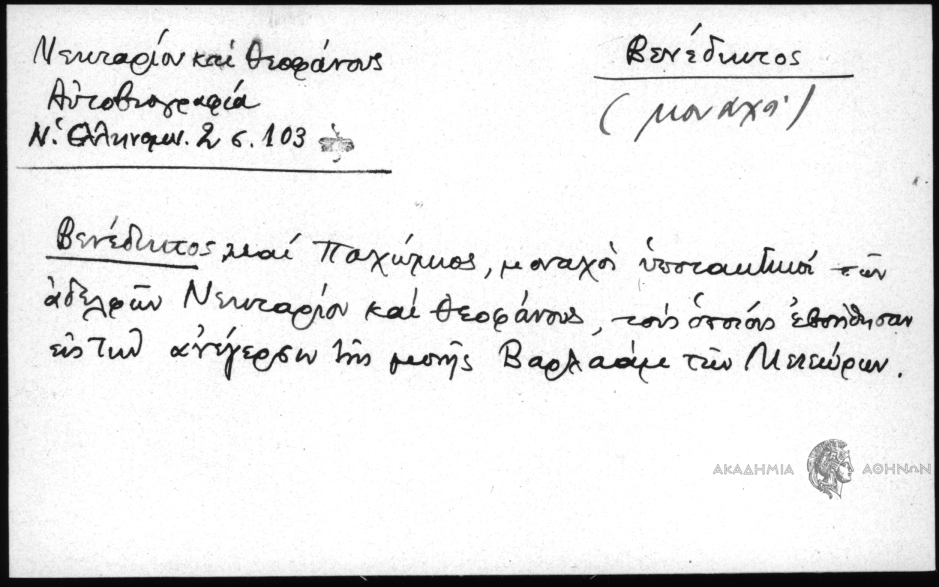 Νεκταρίου καὶ Θεοφάνους
Αὐτοβιογραφία
Ν. Ἑλληνομν. 2 σ. 103
Βενέδικτος
(μοναχὸς)
Βενέδικτος, καὶ Παχώμιος, μοναχοὶ ὑποτακτικοὶ τῶν
ἀδελφῶν Νεκταρίου καὶ Θεοφάνους, τοὺς ὁποίους ἐβοήθησαν
εἰς τὴν ἀνέγερσιν τῆς μονῆς Βαρλαὰμ τῶν Μετεώρων.
ΑΚΑΔΗΜΙΑ ΑΘΗΝΩΝ